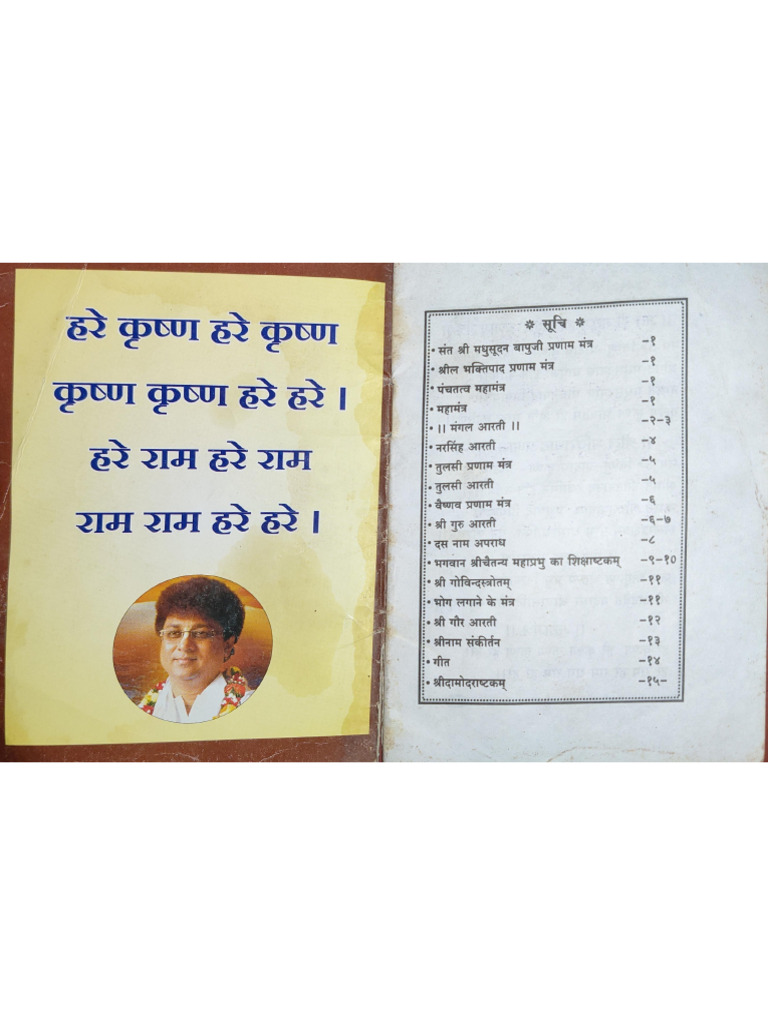 हरे कृष्ण हरे कृष्ण
कृष्ण कृष्ण हरे हरे ।
हरे राम हरे राम
राम राम हरे हरे ।
सूचि
• संत श्री मधुसूदन बापुजी प्रणाम मंत्र -१
• श्रील भक्तिपाद प्रणाम मंत्र -१
• पंचतत्व महामंत्र -१
• महामंत्र -१
• ।। मंगल आरती ।। -२-३
• नरसिंह आरती -४
• तुलसी प्रणाम मंत्र -५
• तुलसी आरती -५
• वैष्णव प्रणाम मंत्र -६
• श्री गुरु आरती -६-७
• दस नाम अपराध -८
• भगवान श्रीचैतन्य महाप्रभु का शिक्षाष्टकम् -९-१०
• श्री गोविन्दस्त्रोतम् -११
• भोग लगाने के मंत्र -११
• श्री गौर आरती -१२
• श्रीनाम संकीर्तन -१३
• गीत -१४
• श्रीदामोदराष्टकम् -१५-